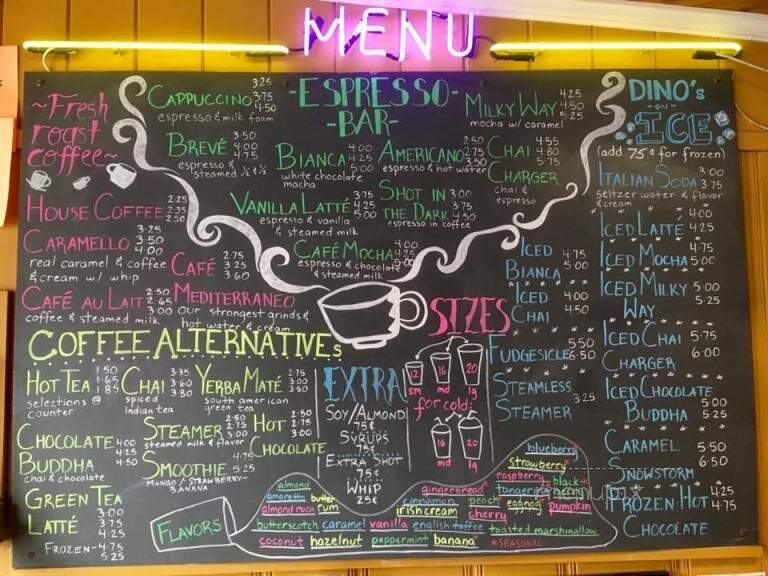 MENU
~Fresh
roast
coffee~
HOUSE COFFEE 2.25 2.35 2.50
CARAMELLO 3.25 3.50 4.00
real caramel & coffee
& cream w/ whip
CAFÉ AU LAIT 2.50 2.65 3.00
coffee & steamed milk
CAFÉ 2.75 3.25 3.60
MEDITERRANEO
Our strongest grinds &
hot water & cream
ESPRESSO
-BAR-
CAPPUCCINO 3.25 3.75 4.50
espresso & milk foam
BREVÉ 3.50 4.00 4.75
espresso &
steamed ½ & ½
BIANCA 4.00 4.25 5.00
white chocolate
mocha
AMERICANO 2.50 2.75 3.50
espresso & hot water
MILKY WAY 4.25 4.50 5.25
mocha w/ caramel
CHAI 4.55 4.80 5.75
CHARGER
chai &
espresso
VANILLA LATTÉ 3.75 4.25 5.00
espresso & vanilla
& steamed milk
SHOT IN 3.00
THE DARK 3.75 4.50
espresso in coffee
CAFÉ MOCHA 4.00 4.25 5.00
espresso & chocolate
& steamed milk
DINO'S
-ON-
ICE
(add 75¢ for frozen)
ITALIAN SODA 3.00 3.75
seltzer water & flavor
& cream
ICED LATTÉ 4.00 4.25
ICED MOCHA 4.75 5.00
ICED MILKY 5.00
WAY 5.25
ICED CHAI 5.75
CHARGER 6.00
ICED CHOCOLATE
BUDDHA 5.00 5.25
CARAMEL 5.50
SNOWSTORM 6.50
FROZEN HOT 4.25
CHOCOLATE 4.75
ICED 4.75
BIANCA 5.00
ICED 4.00
CHAI 4.50
FUDGESICLE 5.50 6.50
STEAMLESS
STEAMER 3.25
SIZES
12 16 20
sm md lg
for cold:
16 20
md lg
COFFEE ALTERNATIVES
HOT TEA 1.50 1.65 1.85
selections @
counter
CHAI 3.35 3.60 3.80
spiced
indian tea
YERBA MATÉ 2.75 3.00 3.50
south american
green tea
CHOCOLATE 4.00
BUDDHA 4.25 4.50
chai & chocolate
STEAMER 2.50 2.75 3.00
steamed milk & flavor
HOT 2.50 2.75 3.00
CHOCOLATE
SMOOTHIE 4.75 5.25
MANGO / STRAWBERRY-
BANANA
GREEN TEA
LATTÉ 3.00 3.75 4.25
FROZEN- 4.75 5.25
EXTRA
SOY/ALMOND
75¢
SYRUPS
75¢
EXTRA SHOT
75¢
WHIP
25¢
FLAVORS
blueberry
strawberry*
raspberry black*
almond gingerbread* tangerine
amaretto butter cinnamon peach* eggnog* pumpkin*
almond roca rum irish cream cherry
butterscotch caramel vanilla english toffee toasted marshmallow
coconut hazelnut peppermint banana* *SEASONAL